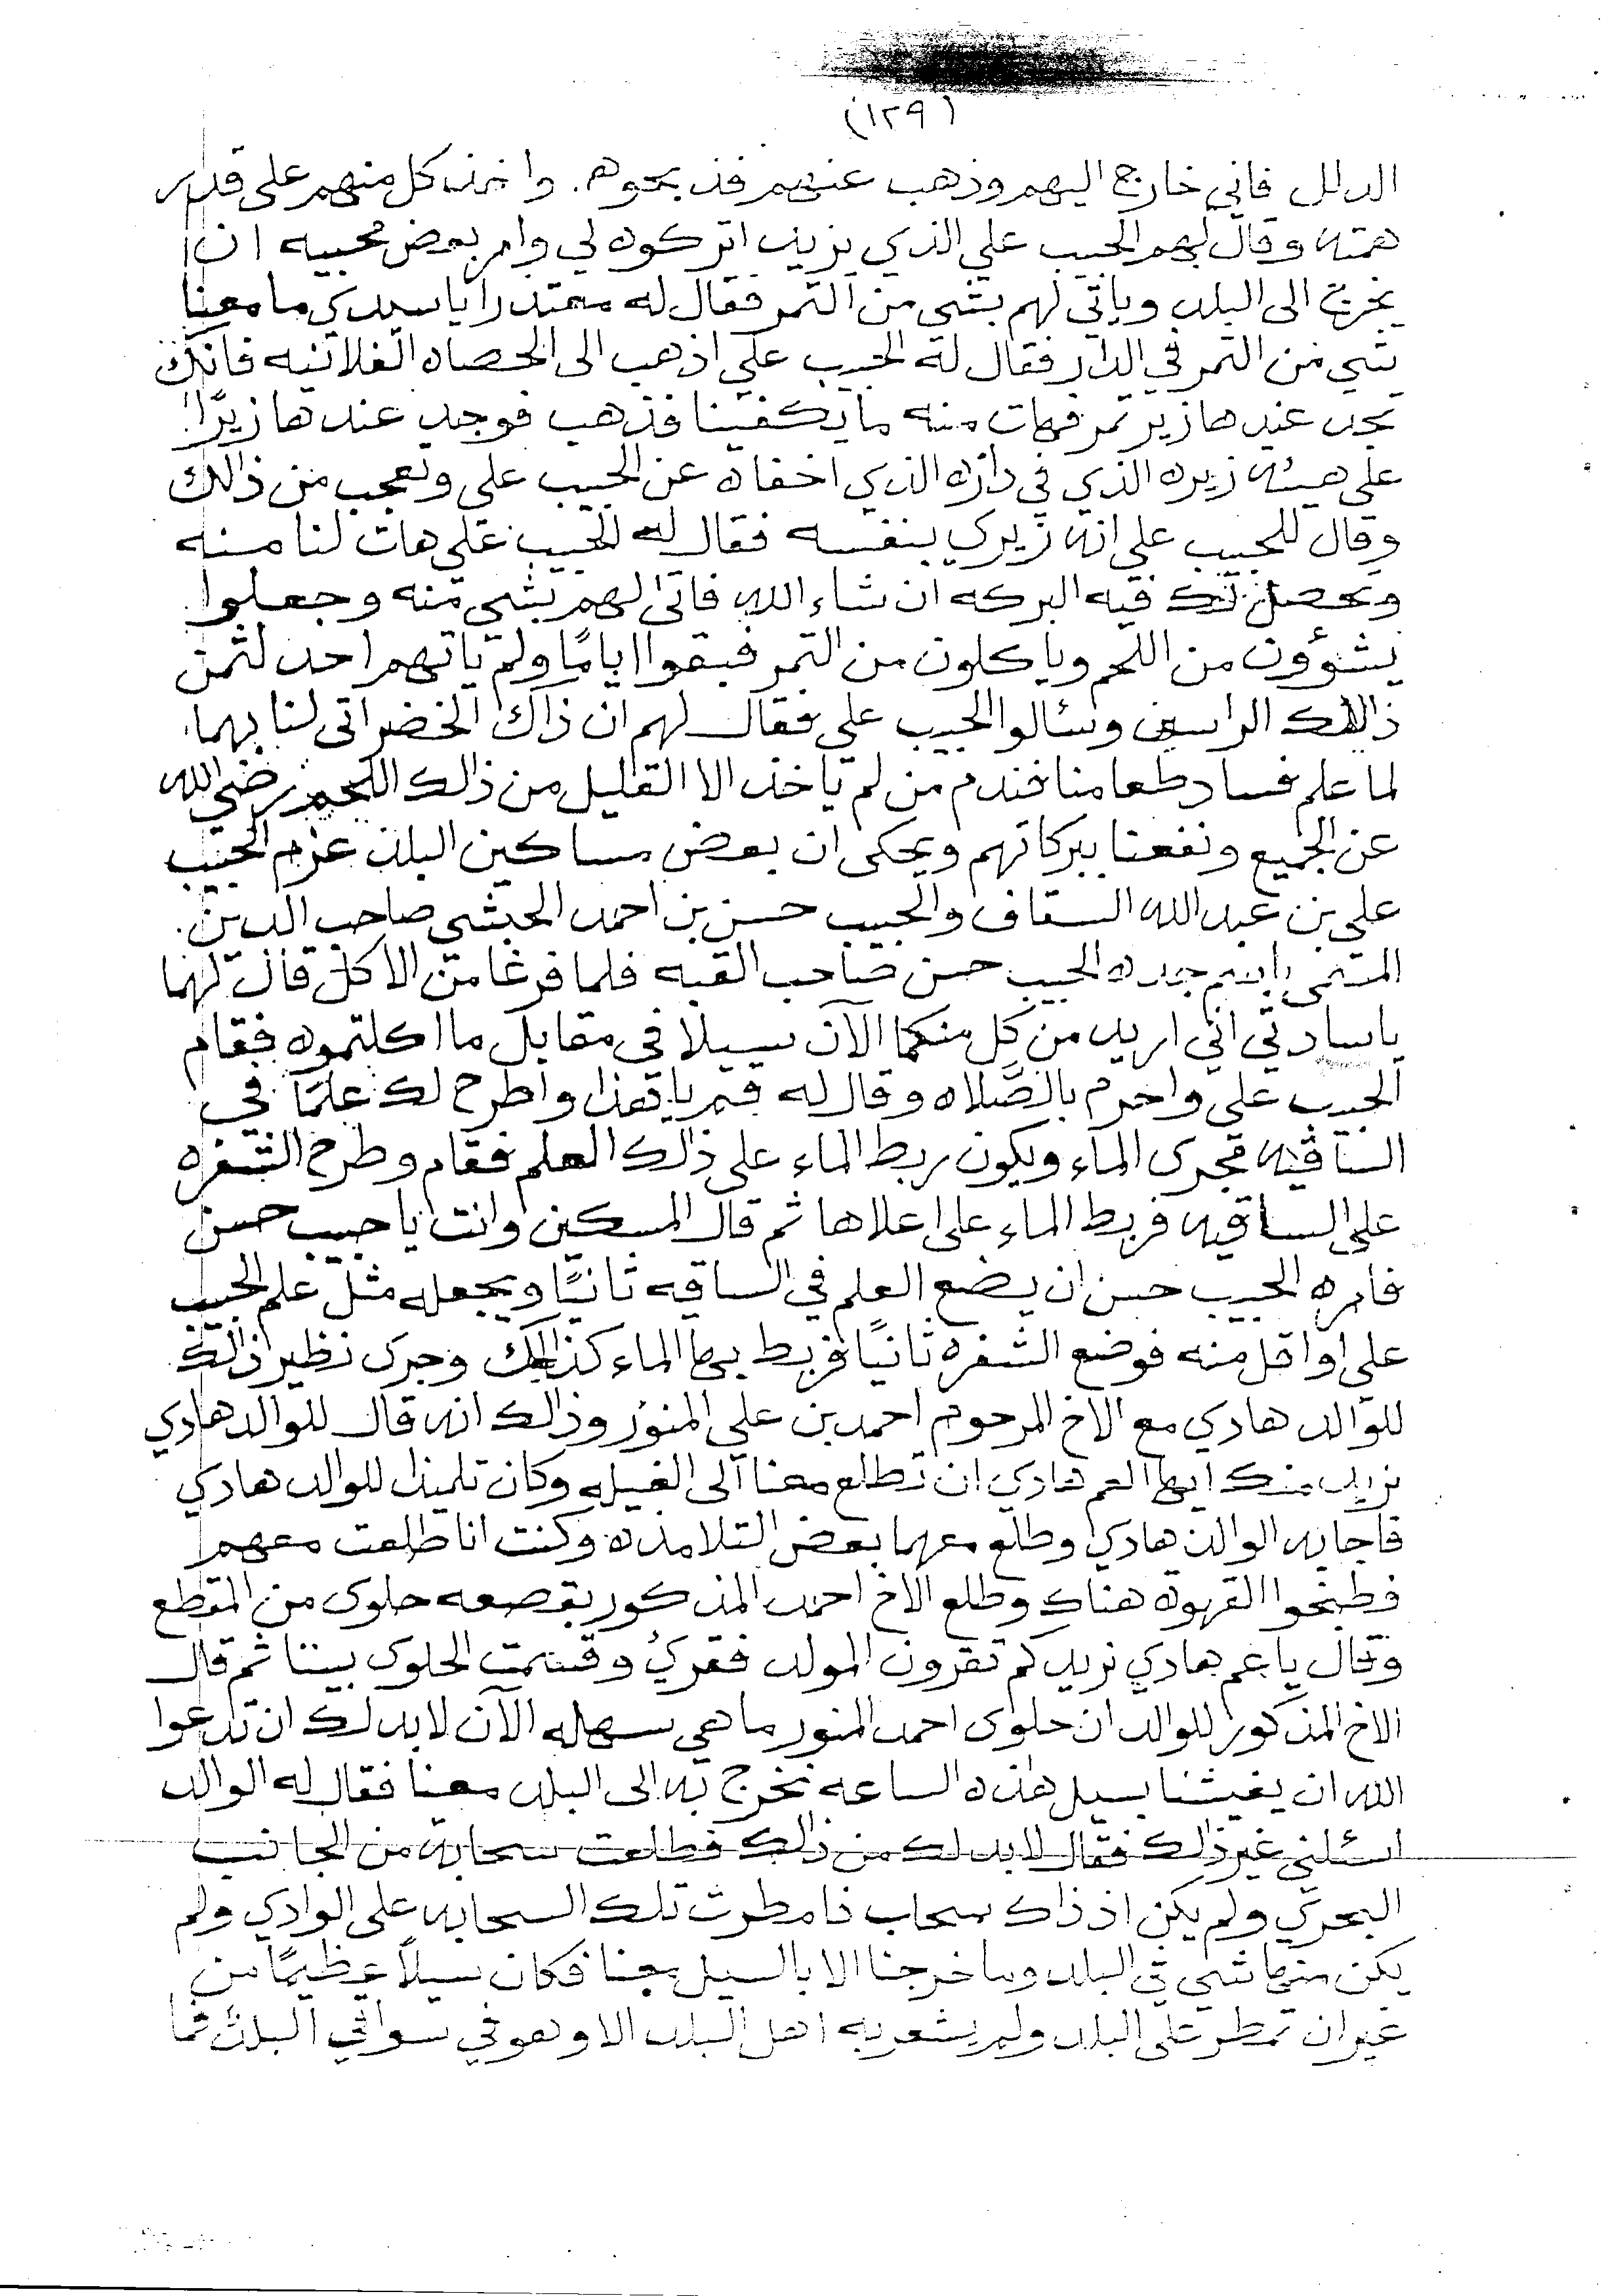 (١٢٩)
الدلل فاني خارج اليهم وذهب عنهم فذبحوهم. واخذ كل منهم على قدر
همته وقال لهم الحبيب علي الذي يزيد اتركوه لي وامر بعض محبيه ان
يخرج الى البلد وياتي لهم بشي من التمر فقال له معتذرا ياسيدي ما معنا
شي من التمر في الدار فقال له الحبيب علي اذهب الى الحصاه الفلانيه فانك
تجد عندها زير تمر فهات منه ما يكفينا فذهب فوجد عندها زيرًا
على هيئه زيره الذي في داره الذي اخفاه عن الحبيب علي وتعجب من ذالك
وقال للحبيب علي انه زيري بنفسه فقال له الحبيب علي هات لنا منه
وتحصل لك فيه البركه ان شاء الله فاتى لهم بشي منه وجعلوا
يشوؤن من اللحم وياكلون من التمر فبقوا ايامًا ولم ياتهم احد لثمن
ذالك الراسين وسئالوا الحبيب علي فقال لهم ان ذاك الخضر اتى لنا بهما
لما علم فساد طعامنا فندم من لم ياخذ الا القليل من ذالك اللحم رضي الله
عن الجميع ونفعنا ببركاتهم ويحكى ان بعض مساكين البلد عزم الحبيب
علي بن عبد الله السقاف والحبيب حسن بن احمد الحبشي صاحب الدين
المسمى باسم جده الحبيب حسن صاحب القبه فلما فرغا من الاكل قال لهما
ياسادتي اني اريد من كل منكما الآن سيلا في مقابل ما اكلتموه فقام
الحبيب علي واحرم بالصَّلاه وقال له قم يا هذا واطرح لك علمًا في
الساقيه مجرى الماء ويكون ربط الماء على ذالك العلم فقام وطرح الشفره
على الساقيه فربط الماء على اعلاها ثم قال المسكين وانت يا حبيب حسن
فامره الحبيب حسن ان يضع العلم في الساقيه ثانيًا ويجعله مثل علم الحبيب
علي او اقل منه فوضع الشفره ثانيًا فربط بها الماء كذالك وجرى نظير ذالك
للوالد هادي مع الاخ المرحوم احمد بن علي المنور وذالك انه قال للوالد هادي
نريد منك ايها العم هادي ان تطلع معنا الى الغيله وكان تلميذا للوالد هادي
فاجابه الوالد هادي وطلع معهما بعض التلامذه وكنت انا طلعت معهم
فطبخوا القهوه هناك وطلع الاخ احمد المذكور بقصعه حلوى من المقطع
وقال يا عم هادي نريدكم تقرون المولد فقرئ وقسمت الحلوى بيننا ثم قال
الاخ المذكور للوالد ان حلوى احمد المنور ما هي سهله الآن لابد لك ان تدعوا
الله ان يغيثنا بسيل هذه الساعه نخرج به الى البلد معنا فقال له الوالد
اسئلني غير ذالك فقال لابد لك من ذالك فطلعت سحابه من الجانب
البحري ولم يكن اذ ذاك سحاب فامطرت تلك السحابه على الوادي ولم
يكن منها شي في البلد وما خرجنا الا بالسيل معنا فكان سيلاً عظيمًا من
غير ان تمطر على البلد ولم يشعر به اهل البلد الا وهو في سواقي البلد ثما